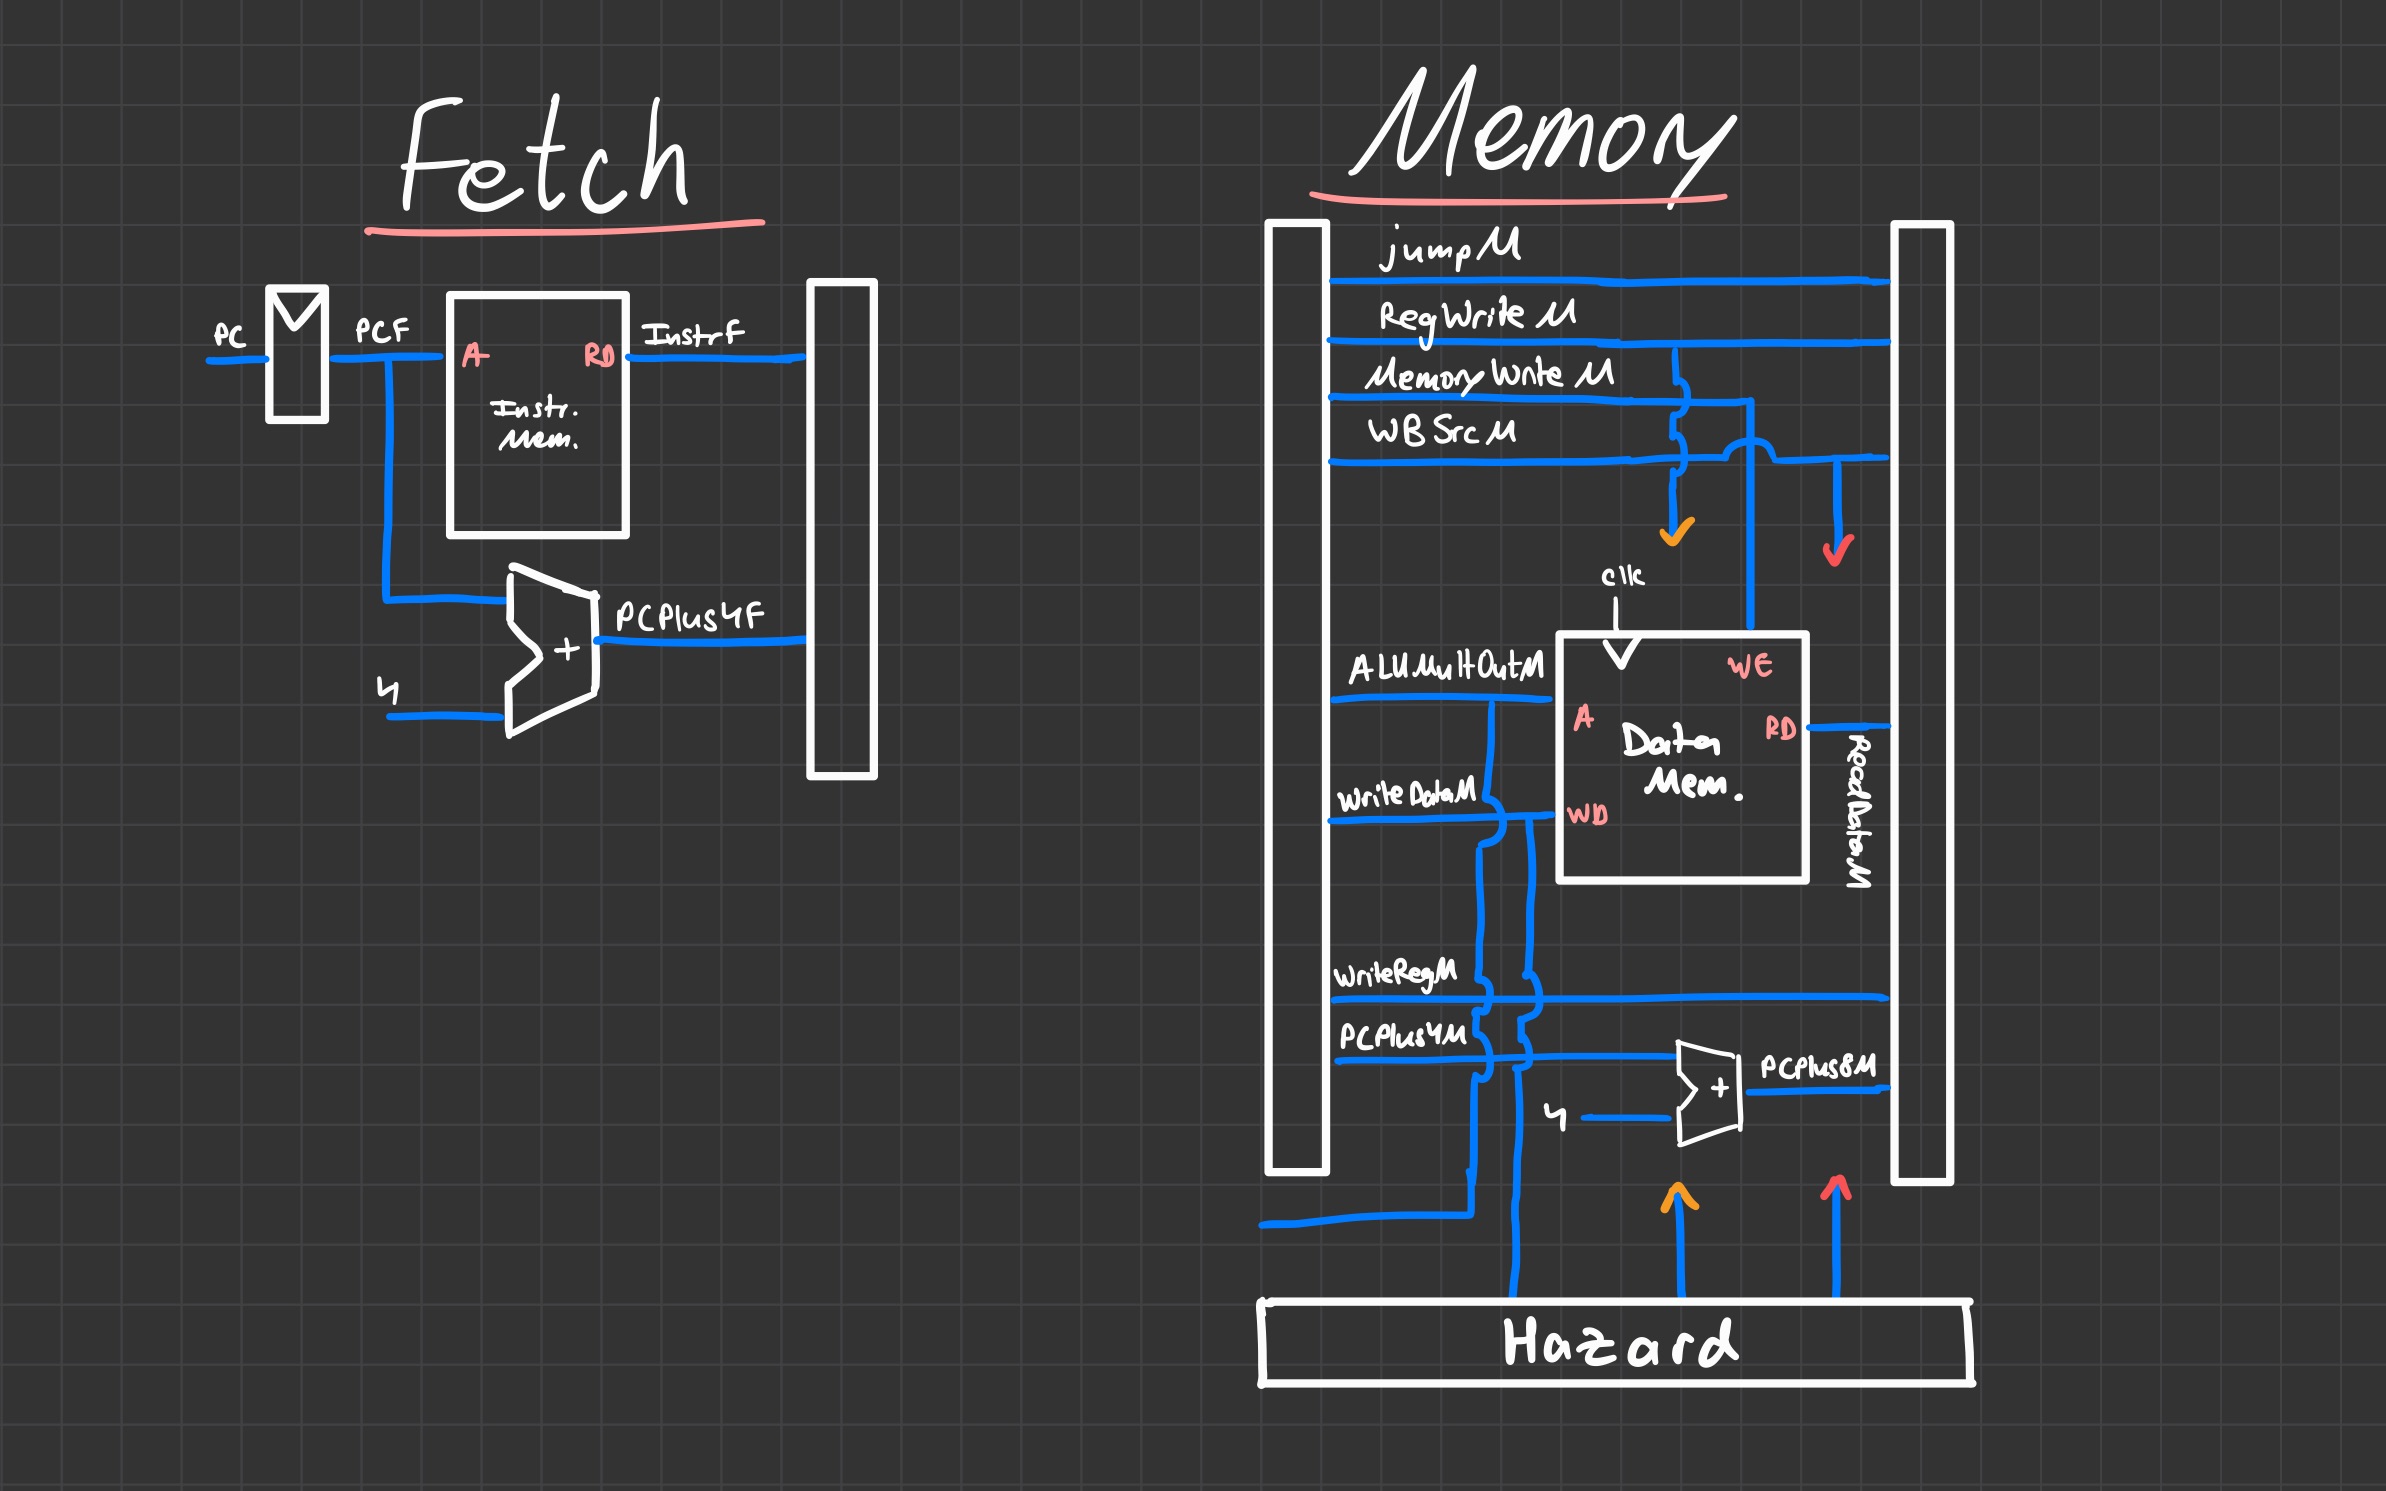 Fetch
PC
PCF
A
RD
InstrF
Instr.
Mem.
+
PCPlus4F
4
Memoy
jumpM
RegWriteM
MemoryWriteM
WBSrcM
clk
ALUMultOutM
WE
A
RD
Data
Mem.
ReadDataM
WriteDataM
WD
WriteRegM
PCPlus4M
+
PCPlus8M
4
Hazard